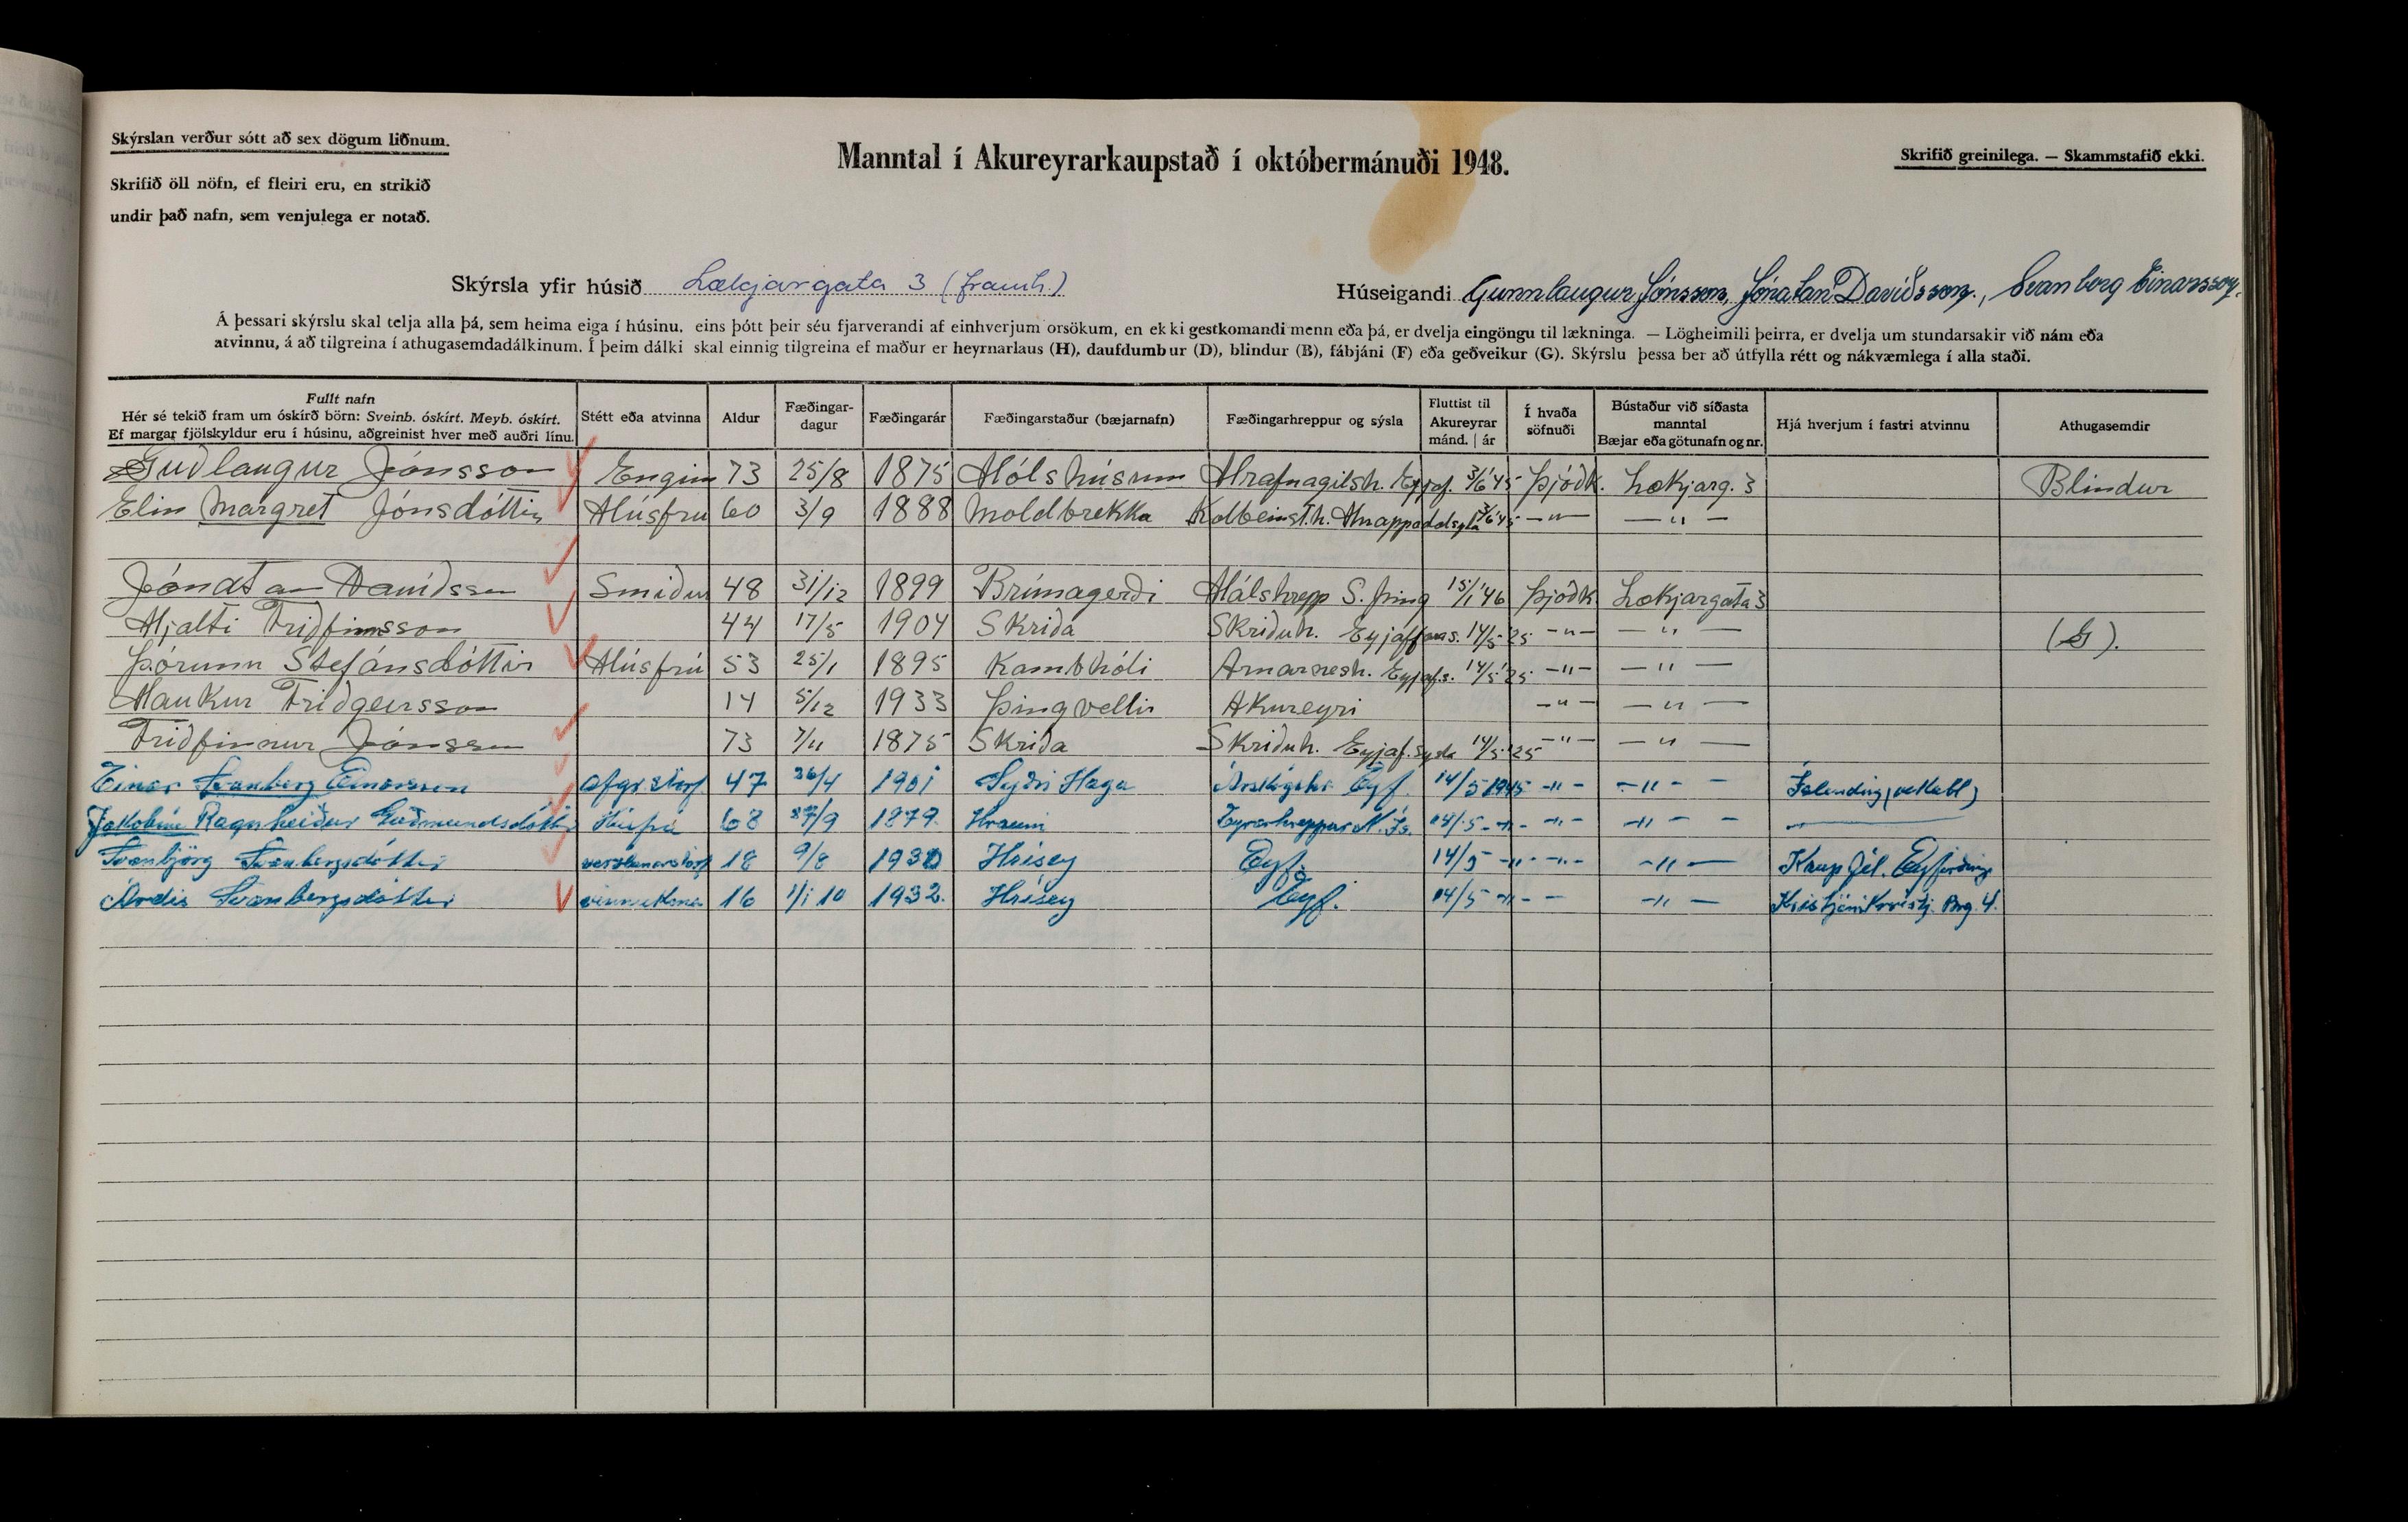 Skýrslan verður sótt að sex dögum liðnum.
Skrifið öll nöfn, ef fleiri eru, en strikið
undir það nafn, sem venjulega er notað.
Manntal í Akureyrarkaupstað í októbermánuði 1948.
Skrifið greinilega. — Skammstafið ekki.
Skýrsla yfir húsið Lækjargata 3 (framh.)
Húseigandi Gunnlaugur Jónsson, Jónatan Davíðsson, Svanberg Einarsson.
Á þessari skýrslu skal telja alla þá, sem heima eiga í húsinu, eins þótt þeir séu fjarverandi af einhverjum orsökum, en ekki gestkomandi menn eða þá, er dvelja eingöngu til lækninga. — Lögheimili þeirra, er dvelja um stundarsakir við nám eða
atvinnu, á að tilgreina í athugasemdadálkinum. Í þeim dálki skal einnig tilgreina ef maður er heyrnarlaus (H), daufdumbur (D), blindur (B), fábjáni (F) eða geðveikur (G). Skýrslu þessa ber að útfylla rétt og nákvæmlega í alla staði.
Fullt nafn
Hér sé tekið fram um óskírð börn: Sveinb. óskírt. Meyb. óskírt.
Ef margar fjölskyldur eru í húsinu, aðgreinist hver með auðri línu.
Stétt eða atvinna
Aldur
Fæðingar-
dagur
Fæðingarár
Fæðingarstaður (bæjarnafn)
Fæðingarhreppur og sýsla
Fluttist til
Akureyrar
mánd. | ár
Í hvaða
söfnuði
Bústaður við síðasta
manntal
Bæjar eða götunafn og nr.
Hjá hverjum í fastri atvinnu
Athugasemdir
Guðlaugur Jónsson Engin 73 25/8 1875 Hólshúsum Hrafnagilsh. Eyjaf. 3/6 '45 Þjóðk. Lækjarg. 3 Blindur
Elin Margret Jónsdóttir Húsfrú 60 3/9 1888 Moldbrekka Kolbeinst.h. Hnappadalsýsla 3/6 '45 — " — — " —
Jónatan Davíðsson Smiður 48 31/12 1899 Brúnagerði Hálshrepp S. Þing 15/1 '46 Þjóðk Lækjargata 3
Hjalti Friðfinnsson 44 17/5 1904 Skriða Skriðuh. Eyjaffars. 14/5 '25 - " - — " — (G).
Þórunn Stefánsdóttir Húsfrú 53 25/1 1895 Kambhóli Arnarnesh. Eyjaf.s. 14/5 '25 - " - — " —
Haukur Friðgeirsson 14 5/12 1933 Þingvellir Akureyri - " - — " —
Friðfinnur Jónsson 73 7/11 1875 Skriða Skriðuh. Eyjaf.sýsla 14/5 '25 - " - — " —
Einar Svanberg Einarsson afgr.störf 47 26/4 1901 Syðri Haga Eyf. 14/5 1945 - " - - " - -
Jakobína Ragnheiður Guðmundsdóttir Húsfrú 68 27/9 1879 Hrauni Eyrarhreppur N. Ís. 14/5 - " - - " - - " - -
Svanbjörg Svanbergsdóttir verslunarstörf 18 9/8 1930 Hrísey Eyf. 14/5 - " - - " - - " — Kaupfél. Eyfirðinga
Árdís Svanbergsdóttir 16 10 1932. Hrísey Eyf. 14/5 - " - - - " —